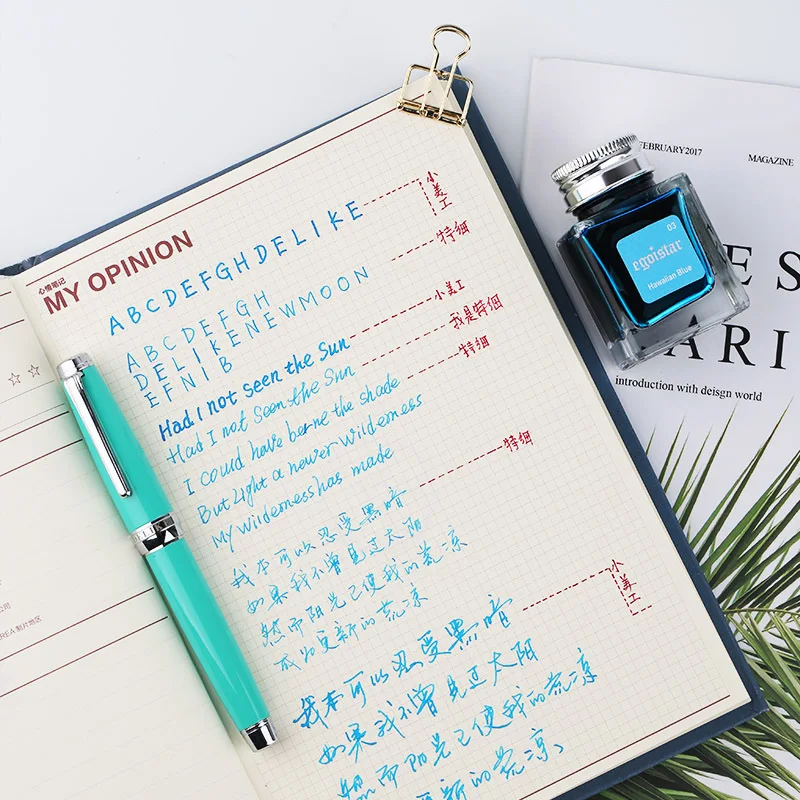 心情笔记
MY OPINION
ABCDEFGHDELIKE
小美工
ABCDEFGH
特细
DELIKENEWMOON
EFNIB
Had I not seen the Sun
小美工
Had I not seen the Sun
我是特细
I could have berne the shade
特细
But Light a newer Wilderness
My Wilderness has made
特细
我本可以忍受黑暗
如果我不曾见过太阳
然而阳光已使我的荒凉
成为更新的荒凉
小美工
我本可以忍受黑暗
如果我不曾见过太阳
然而阳光已使我的荒凉
更新的荒凉、
03
egoistar
Hawaiian Blue
FEBRUARY2017
MAGAZINE
ES
ARI
introduction with deisgn world
公司
REA:制片地区